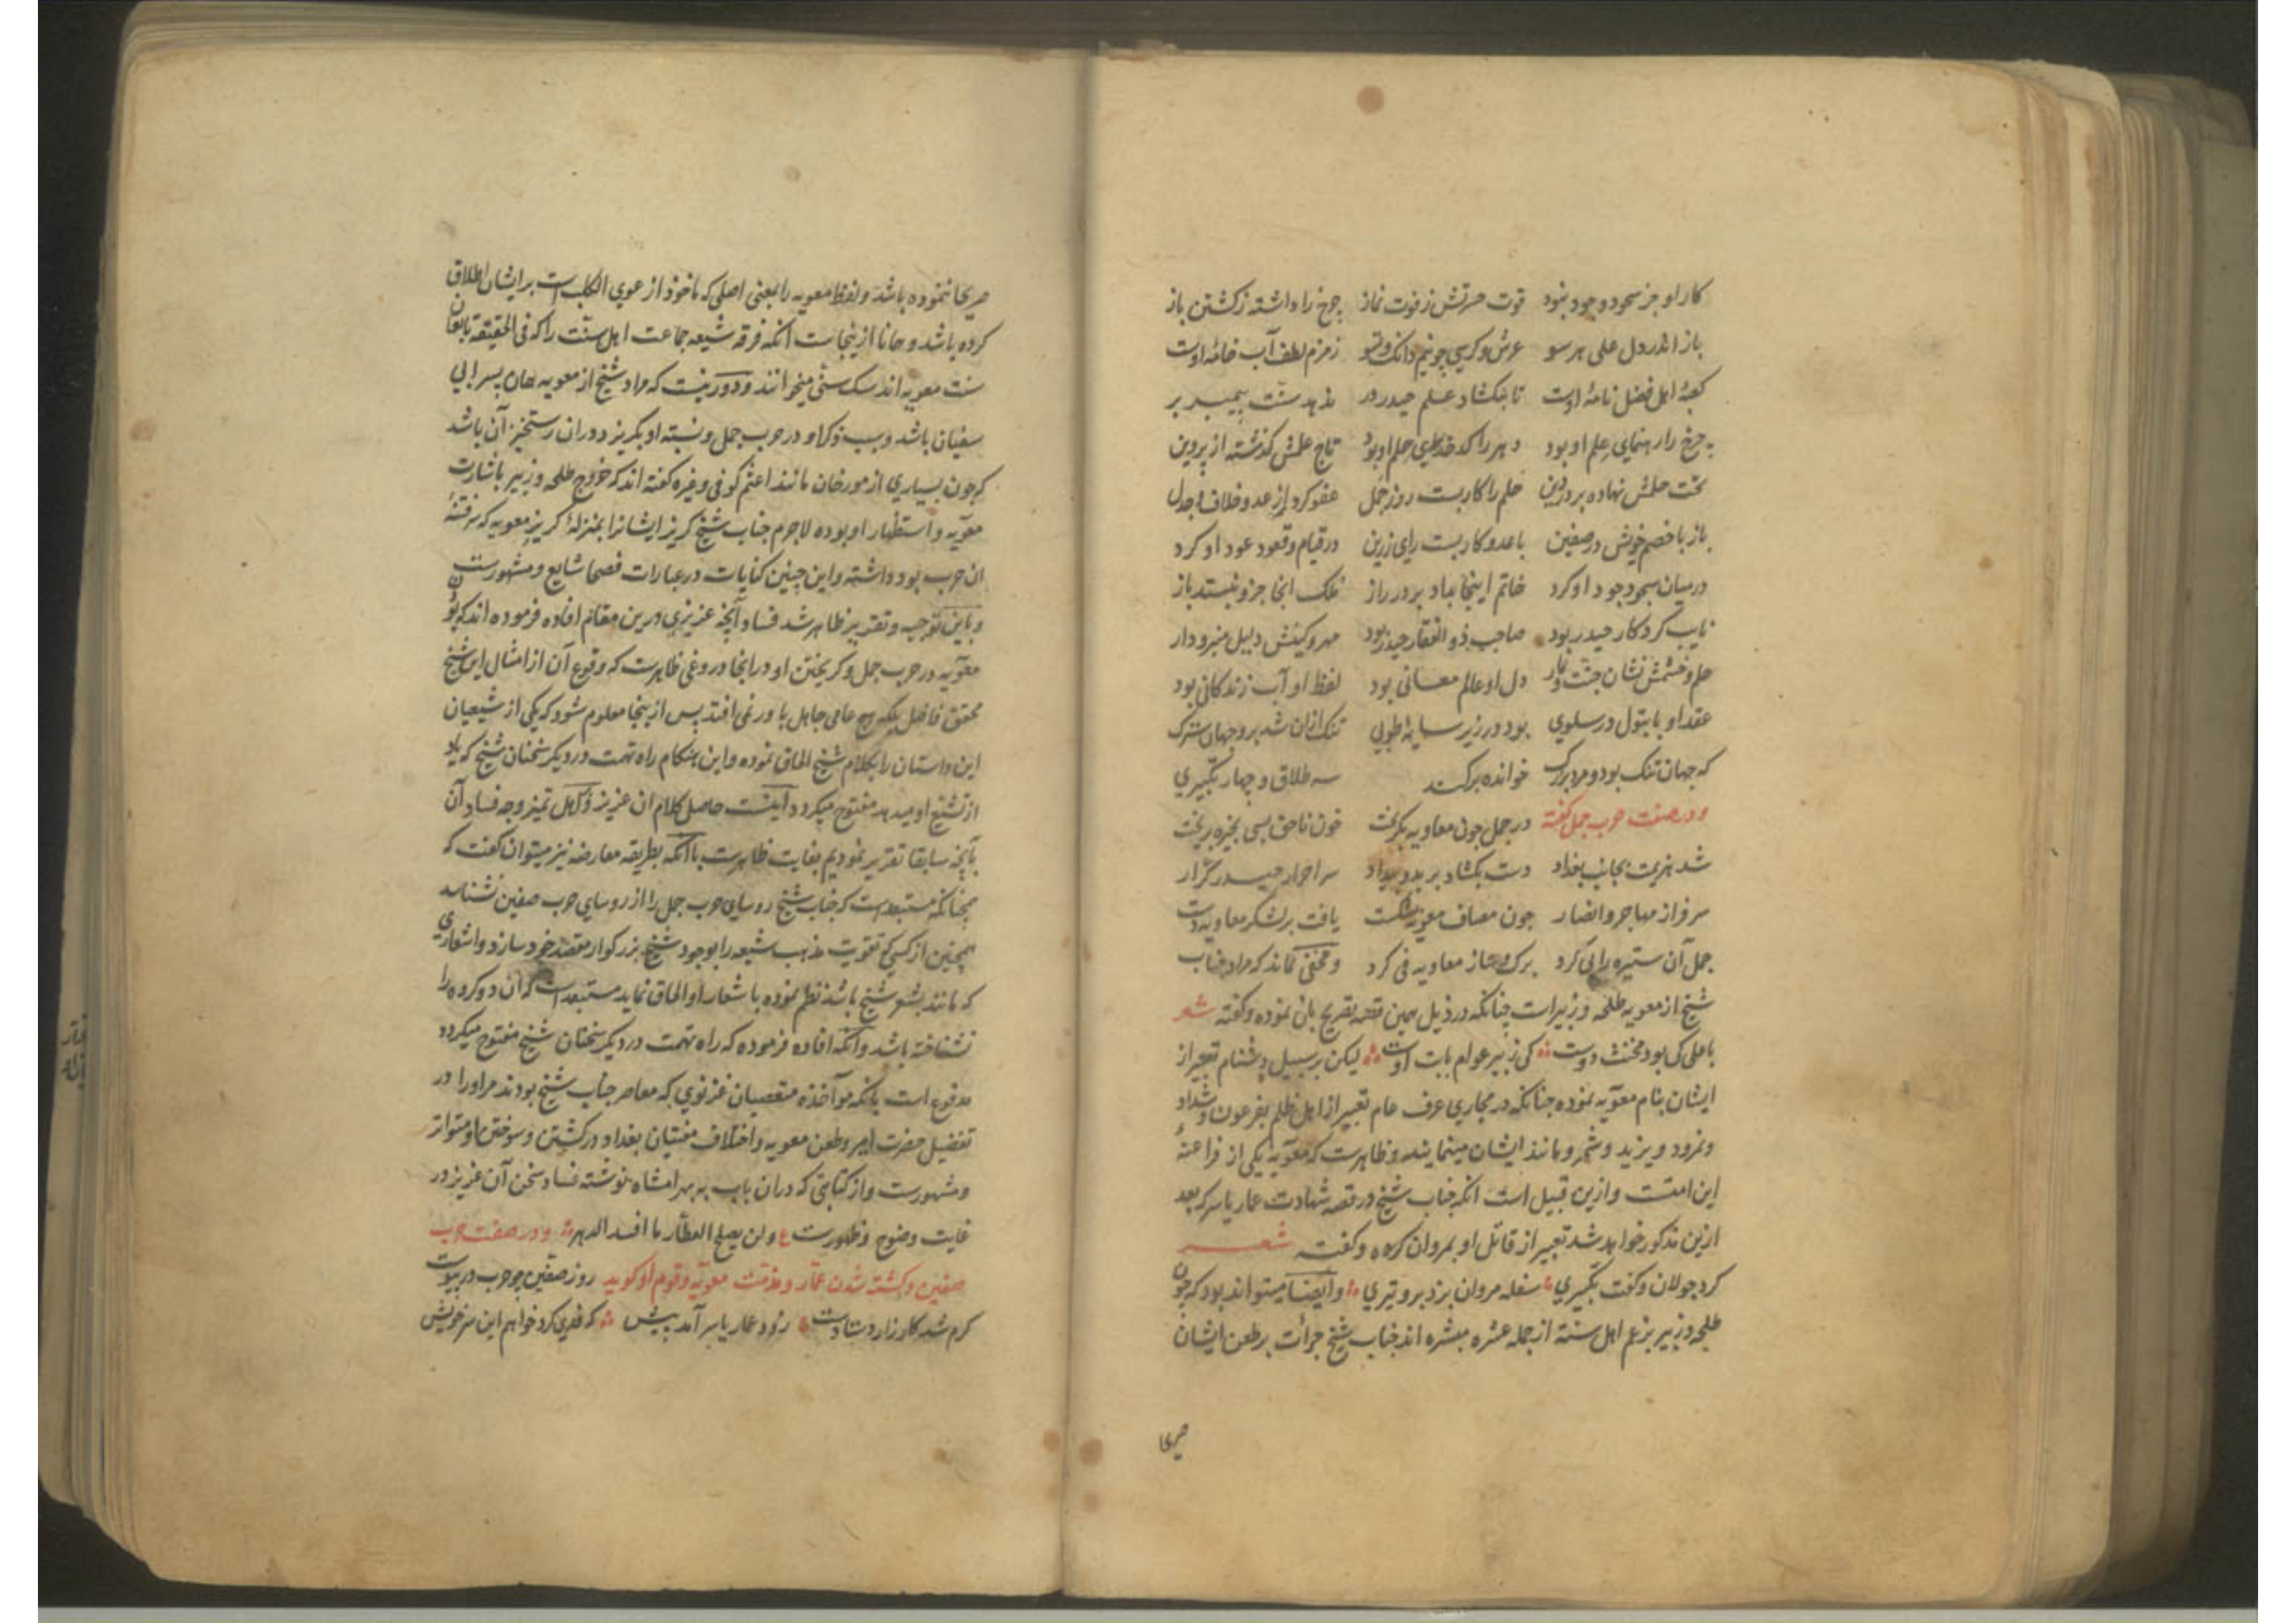 کار او جز سجود وجود نبود قوت حسرتش ز فوت نماز چرخ را داشته ز کشتن باز
باز اندر دل علی هر سو عرش و کرسی چو نیم دانک و تسو زمزم لطف آب خامهٔ اوست
کعبهٔ اهل فضل نامهٔ اوست تا بنکشاد علم حیدر در ندهد سنت پیمبر بر
چرخ را رهنمای علم او بود دهر را کدخدای حلم او بود تاج علمش کذشته از پروین
تخت حلمش نهاده بر در دین حلم را کار بست روز جمل عفو کرد از عدو خلاف و جدل
باز با خصم خویش در صفین با عدو کار بست رای زرین در قیام و قعود عود او کرد
در میان سجود جود او کرد خاتم اینجا بداد بر در راز ملک انجا جز و نبستد باز
نایب کردکار حیدر بود صاحب ذو الفقار حیدر بود مهر و کینش دلیل منبر و دار
حلم و خشمش نشان جنت و نار دل او عالم معانی بود لفظ او آب زندکانی بود
عقد او با بتول در سلوی بود در زیر سایهٔ طوبی تنک ازان شد برو جهان سترک
که جهان تنک بود و مرد بزرک خوانده بر کند سه طلاق و چهار تکبیری
و در صفت حرب جمل کفته در جمل چون معاویه بکریخت خون ناحق بسی بخیره بریخت
شد هزیمت بجانب بغداد دست بکشاد بر بد و بیداد سر احرار حیدر کرار
سرفراز مهاجر و انصار چون مصاف معویه بشکست یافت بر لشکر معاویه دست
جمل آن ستیره را پی کرد برک و ساز معاویه فی کرد و مخفی نماند که مراد جناب
شیخ از معویه طلحه و زبیر است چنانکه در ذیل همین قصه تصریح بان نموده و کفته شعر
با علی کی بود مخنث دوست کی زبیر عوام بابت اوست لیکن بر سبیل دشنام تعبیر از
ایشان بنام معویه نموده چنانکه در مجاری عرف عام تعبیر از اهل ظلم بفرعون و شداد
و نمرود و یزید و شمر و مانند ایشان مینمایند و ظاهرست که معویه یکی از فراعنهٔ
این امتست و ازین قبیل است انکه جناب شیخ در قصه شهادت عمار یاسر که بعد
ازین مذکور خواهد شد تعبیر از قاتل او بمروان کرده و کفته شعر
کرد جولان و کفت تکبیری سفله مروان بزد برو تیری و ایضا میتواند بود که چون
طلحه و زبیر بزعم اهل سنة از جمله عشره مبشره اند جناب شیخ جرأت بر طعن ایشان
صریحا
صریحا ننموده باشد و لفظ معویه را بمعنی اصلی که ماخوذ از عوی الکلب است بر ایشان اطلاق
کرده باشد و همانا ازینجاست انکه فرقه شیعه جماعت اهل سنت را که فی الحقیقة تابعان
سنت معویه اند سک سنی میخوانند و دور نیست که مراد شیخ از معویه همان پسر ابی
سفیان باشد و سبب ذکر او در حرب جمل و نسبت او بکریز دوران رستخیز آن باشد
که چون بسیاری از مورخان مانند اعثم کوفی و غیره کفته اند که خروج طلحه و زبیر باشارت
معویه و استظهار او بوده لاجرم جناب شیخ کریز ایشانرا بمنزلهٔ کریز معویه که سر فتنهٔ
ان حرب بود داشته و این چنین کنایات در عبارات فصحا شایع و مشهورست
و باین توجیه و تقریر ظاهر شد فساد آنچه عزیزی درین مقام افاده فرموده اند که بودن
معویه در حرب جمل و کریختن او در انجا دروغی ظاهرست که وقوع آن از امثال این شیخ
محقق فاضل بلکه هیچ عامی جاهل باور نمی افتد پس ازینجا معلوم شود که یکی از شیعیان
این داستان را بکلام شیخ الحاق نموده و این هنکام راه تهمت در دیکر سخنان شیخ که یاد
از تشیع او میدهد مفتوح میکردد اینست حاصل کلام ان عزیز و کمال تمیز وجه فساد آن
بآنچه سابقا تقریر نمودیم بغایت ظاهرست با آنکه بطریقه معارضه نیز میتوان کفت که
همچنانکه مستبعد است که جناب شیخ روسای حرب جمل را از روسای حرب صفین نشناسد
همچنین از کسی که تقویت مذهب شیعه را بوجود شیخ بزرکوار مقصد خود سازد و اشعاری
که مانند بشعر شیخ باشد نظم نموده با شعار او الحاق نماید مستبعد است که ان دو کروه را
نشناخته باشد و آنکه افاده فرموده که راه تهمت در دیکر سخنان شیخ مفتوح میکردد
مدفوع است بانکه مواخذه متعصبان غزنوی که معاصر جناب شیخ بودند مر او را در
تفضیل حضرت امیر و طعن معویه و اختلاف مفتیان بغداد در کشتن و سوختن او متواتر
و مشهورست و از کتابتی که دران باب به بهرامشاه نوشته فساد سخن آن عزیز در
غایت وضوح و ظهورست ع ولن یصلح العطار ما افسد الدهر و در صفت حرب
صفین و کشته شدن عمار و مذمت معویه و قوم او کوید روز صفین چو حرب در پیوست
کرم شد کارزار دستادست رفت عمار یاسر آمد پیش که فدی کرد خواهم این سر خویش